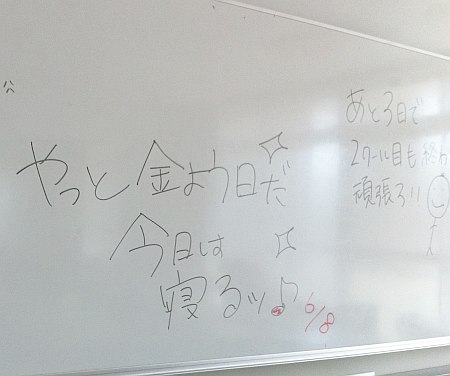 やっと金よう日だ
今日は
寝るッ♪
6/8
あと3日で
2クール目も終わ
頑張ろ!!